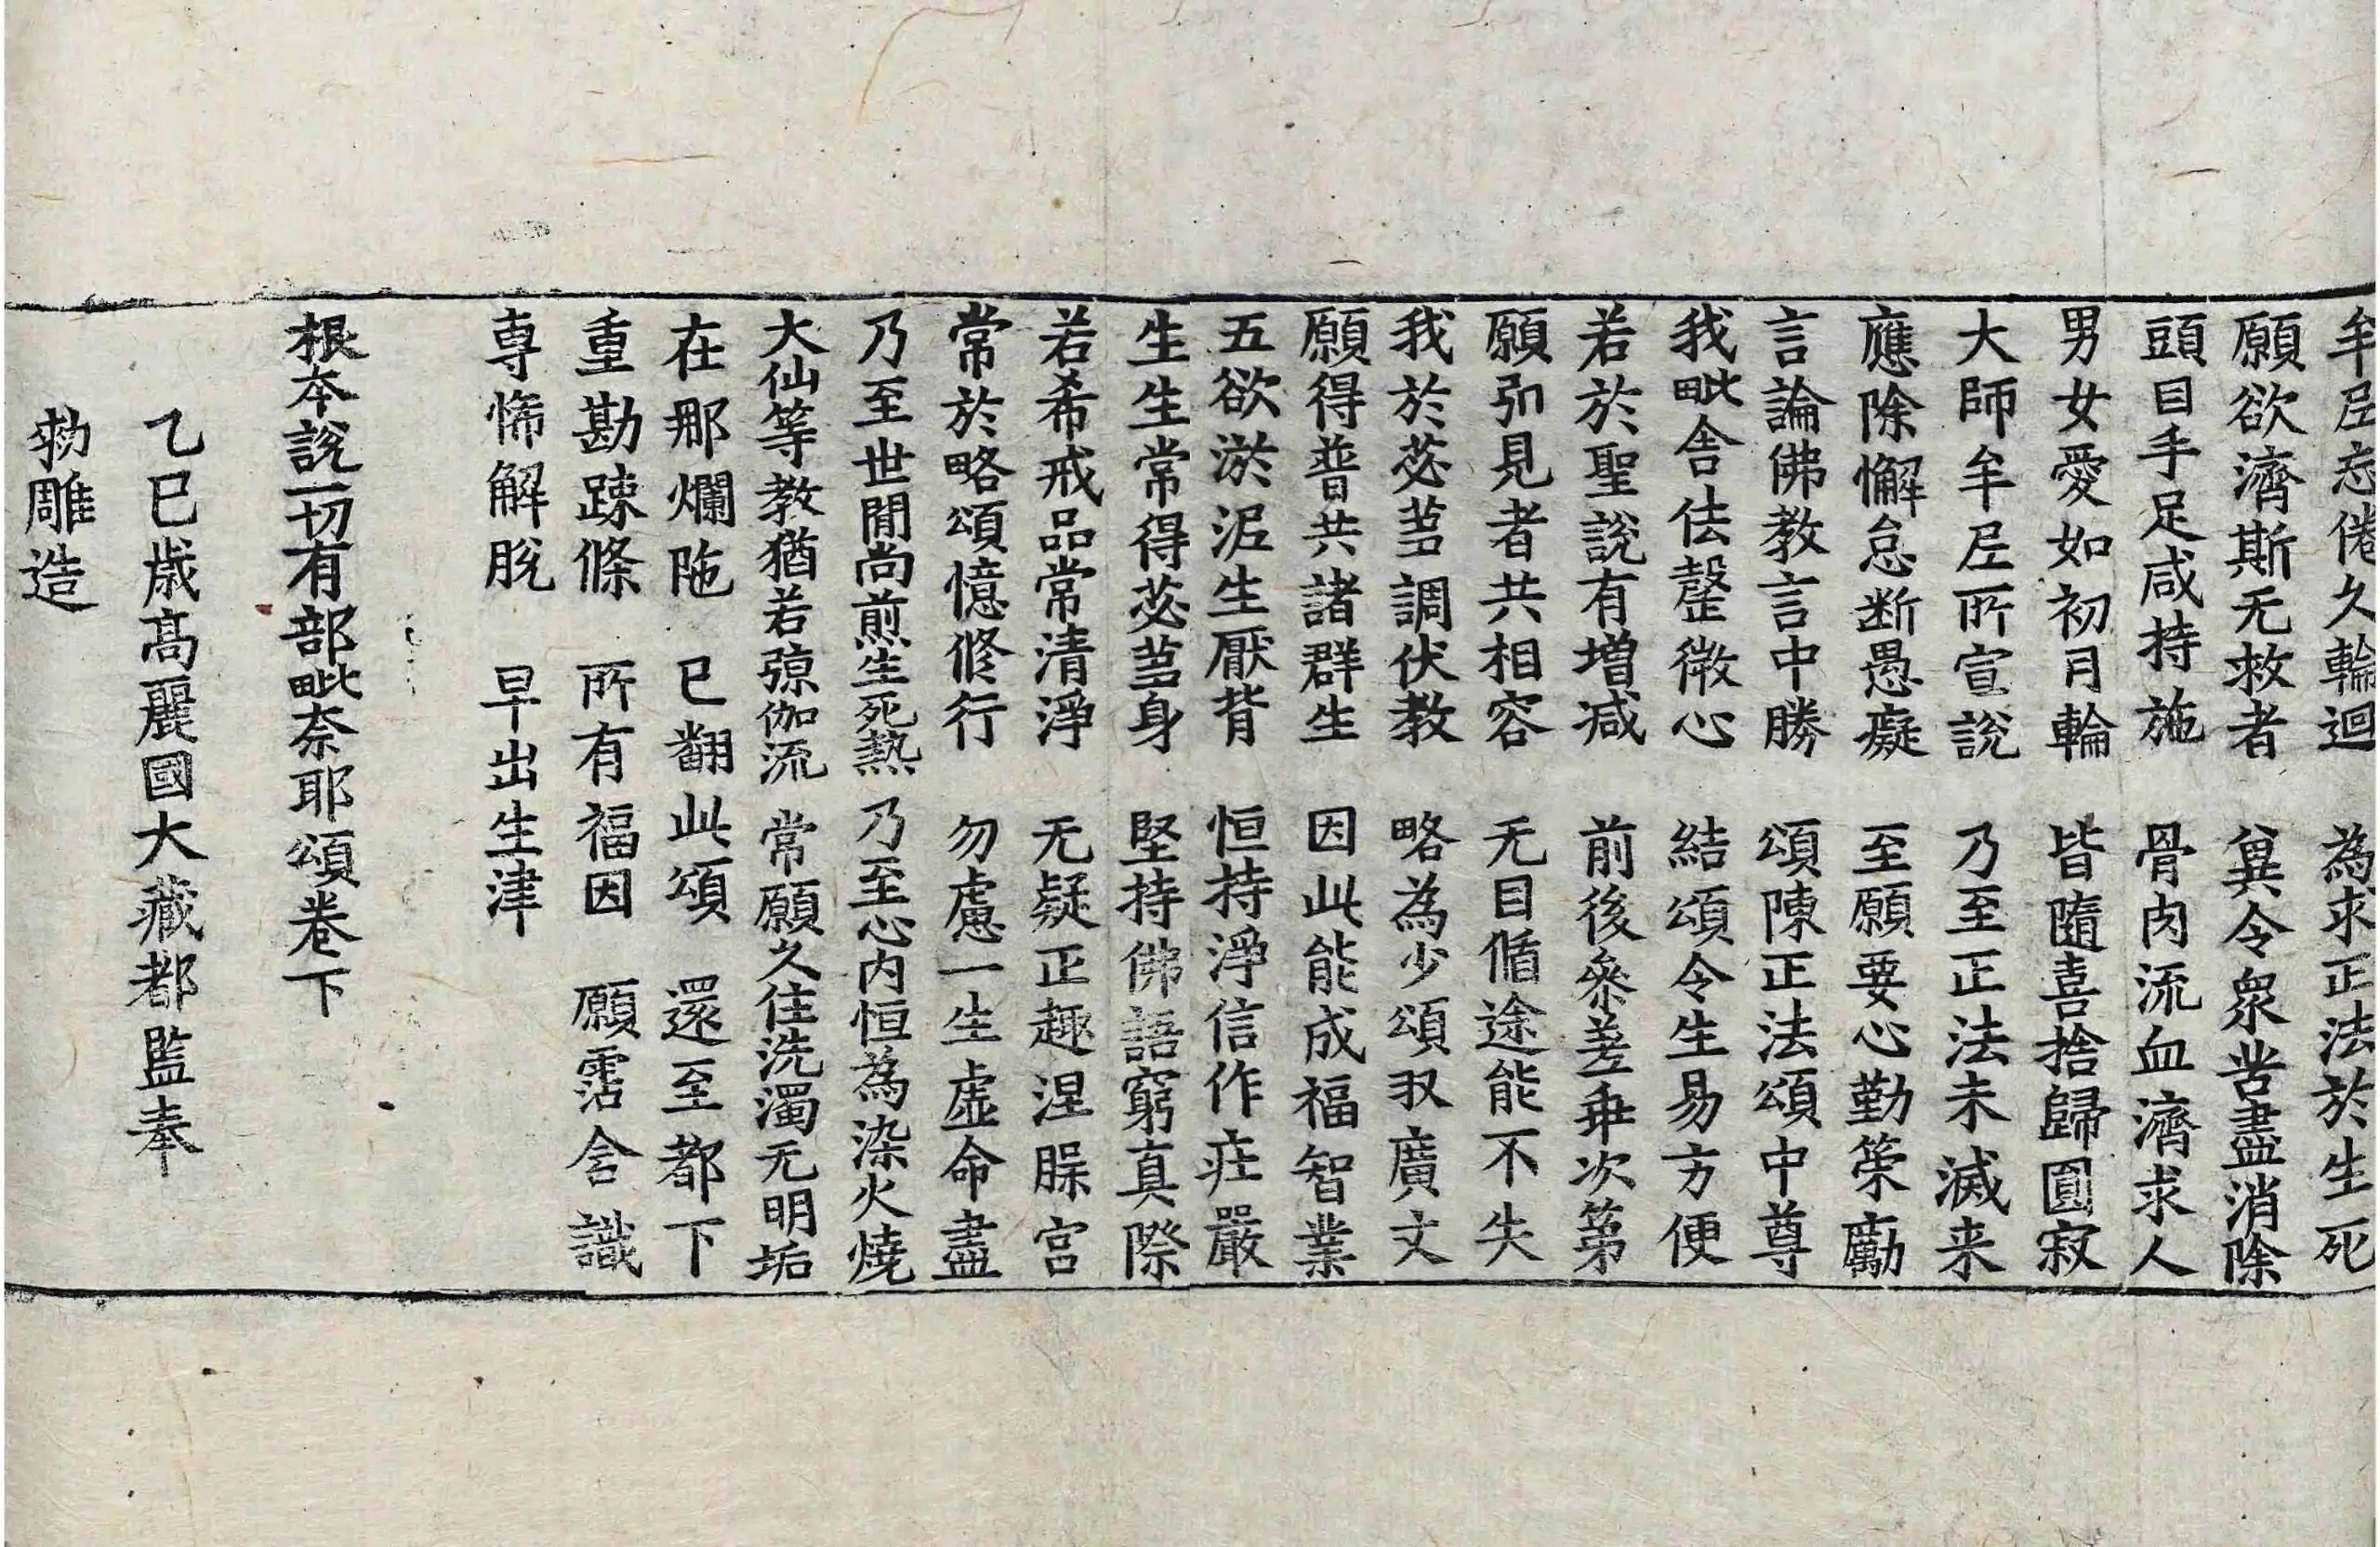 牟𡰱忘倦久輪迴　為求正法於生死
願欲濟斯无救者　兾令衆苦盡消除
頭目手足咸持施　骨肉流血濟求人
男女愛如初月輪　皆隨喜捨歸圓寂
大師牟𡰱所宣說　乃至正法未滅来
應除懈怠断愚癡　至願要心勤策勵
言論佛教言中勝　頌陳正法頌中尊
我毗舍佉罄微心　結頌令生易方便
若於聖說有增减　前後叅差乖次第
願引見者共相容　无目循途能不失
我於苾蒭調伏教　略為少頌収廣文
願得普共諸群生　因此能成福智業
五欲淤泥生厭背　恒持淨信作莊嚴
生生常得苾蒭身　堅持佛語窮真際
若希戒品常清淨　无疑正趣涅槃宮
常於略頌憶修行　勿慮一生虛命盡
乃至世閒尚煎生死熱　乃至心內恒為染火燒
大仙等教猶若弶伽流　常願久住洗濁无明垢
在那爛陁　已翻此頌　還至都下
重勘踈條　所有福因　願霑含識
専悕解脫　早出生津
根本說一切有部毗奈耶頌卷下
乙巳歳髙麗國大藏都監奉
勑雕造